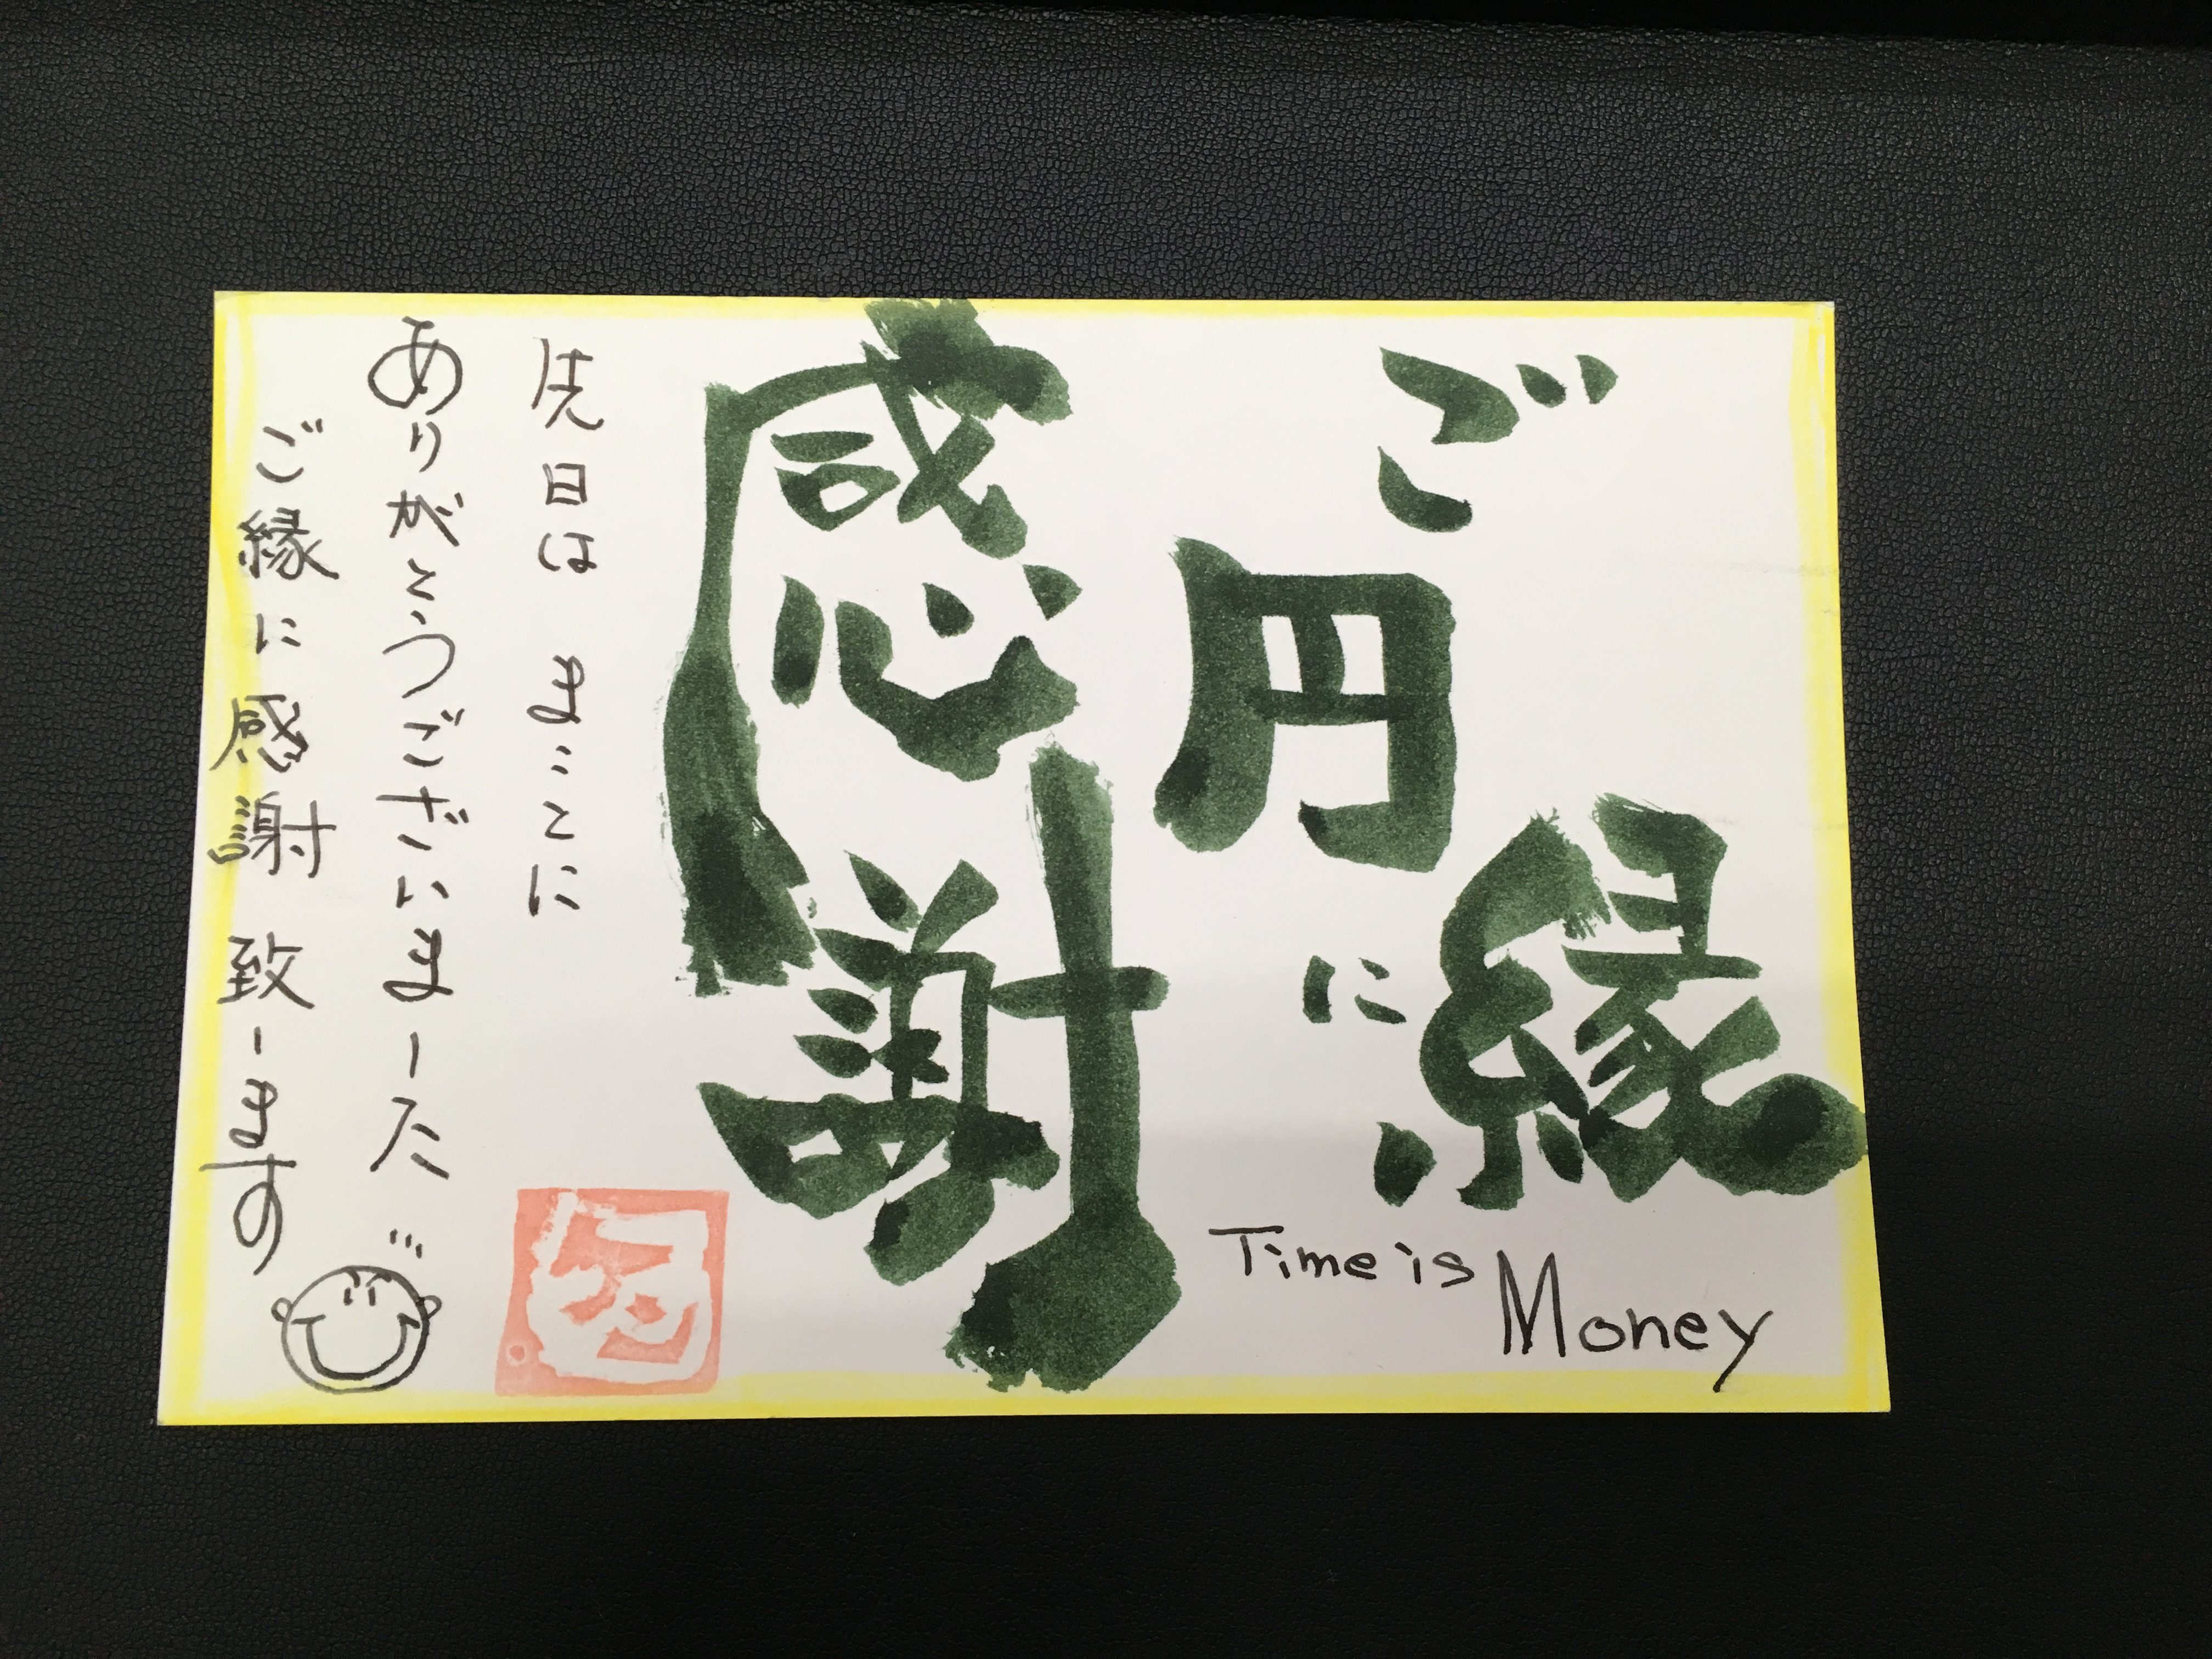 ご縁
円に
感謝
Time is
Money
先日は まことに
ありがとうございました
ご縁に感謝致します